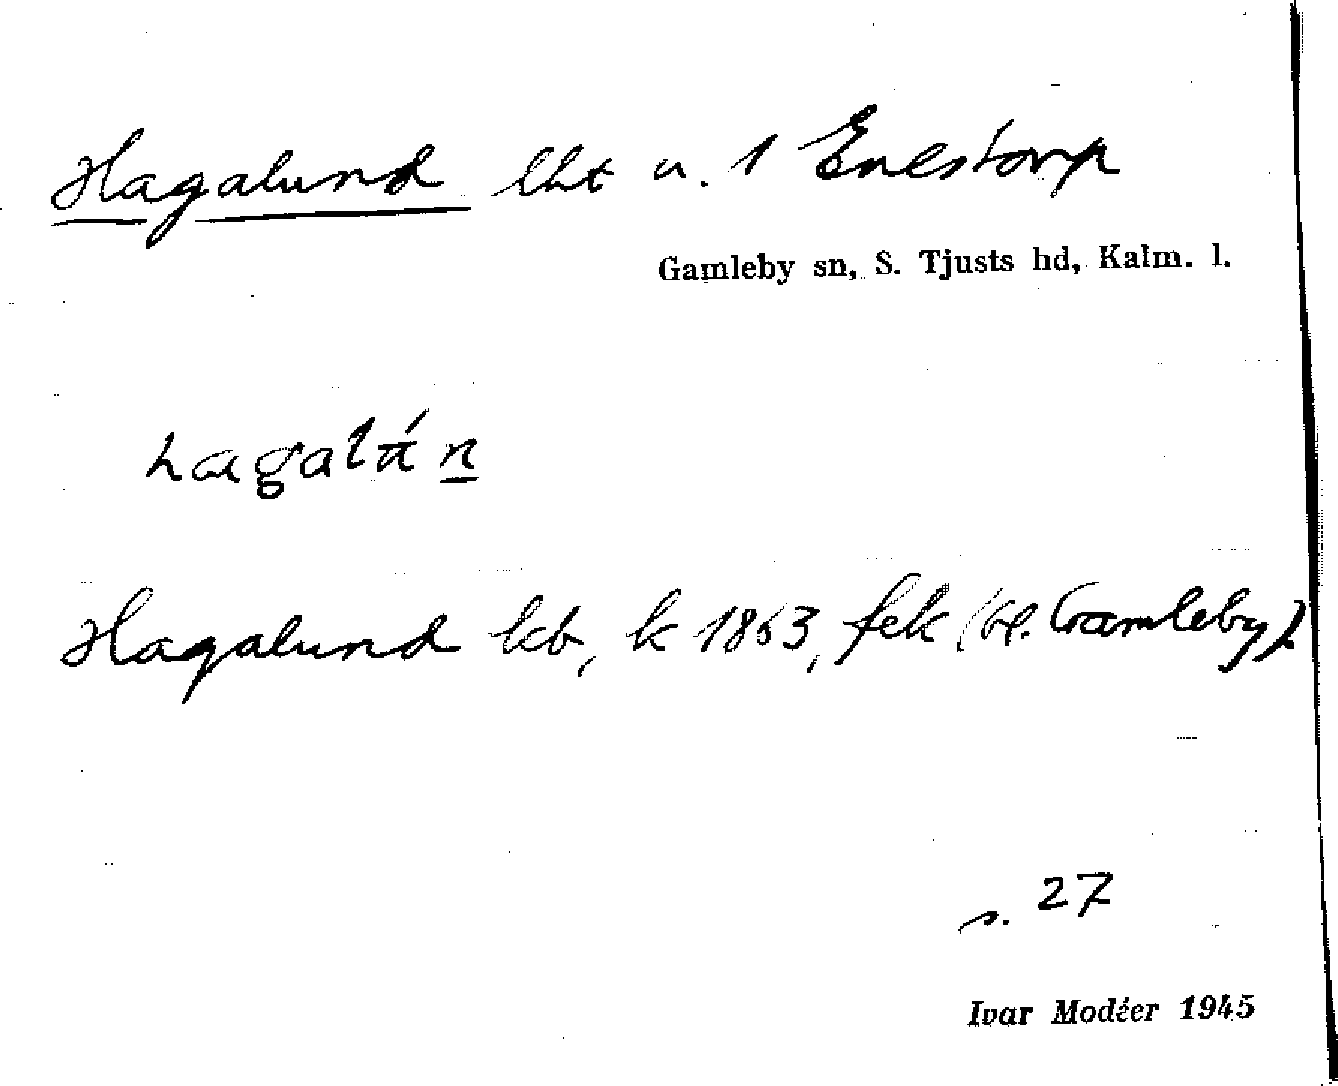 Hagalund lht u. 1 Enestorp
Gamleby sn, S. Tjusts hd, Kalm. l.
hagalán
Hagalund kb, k 1863, fek (bl. Gamleby).
s. 27
Ivar Modéer 1945